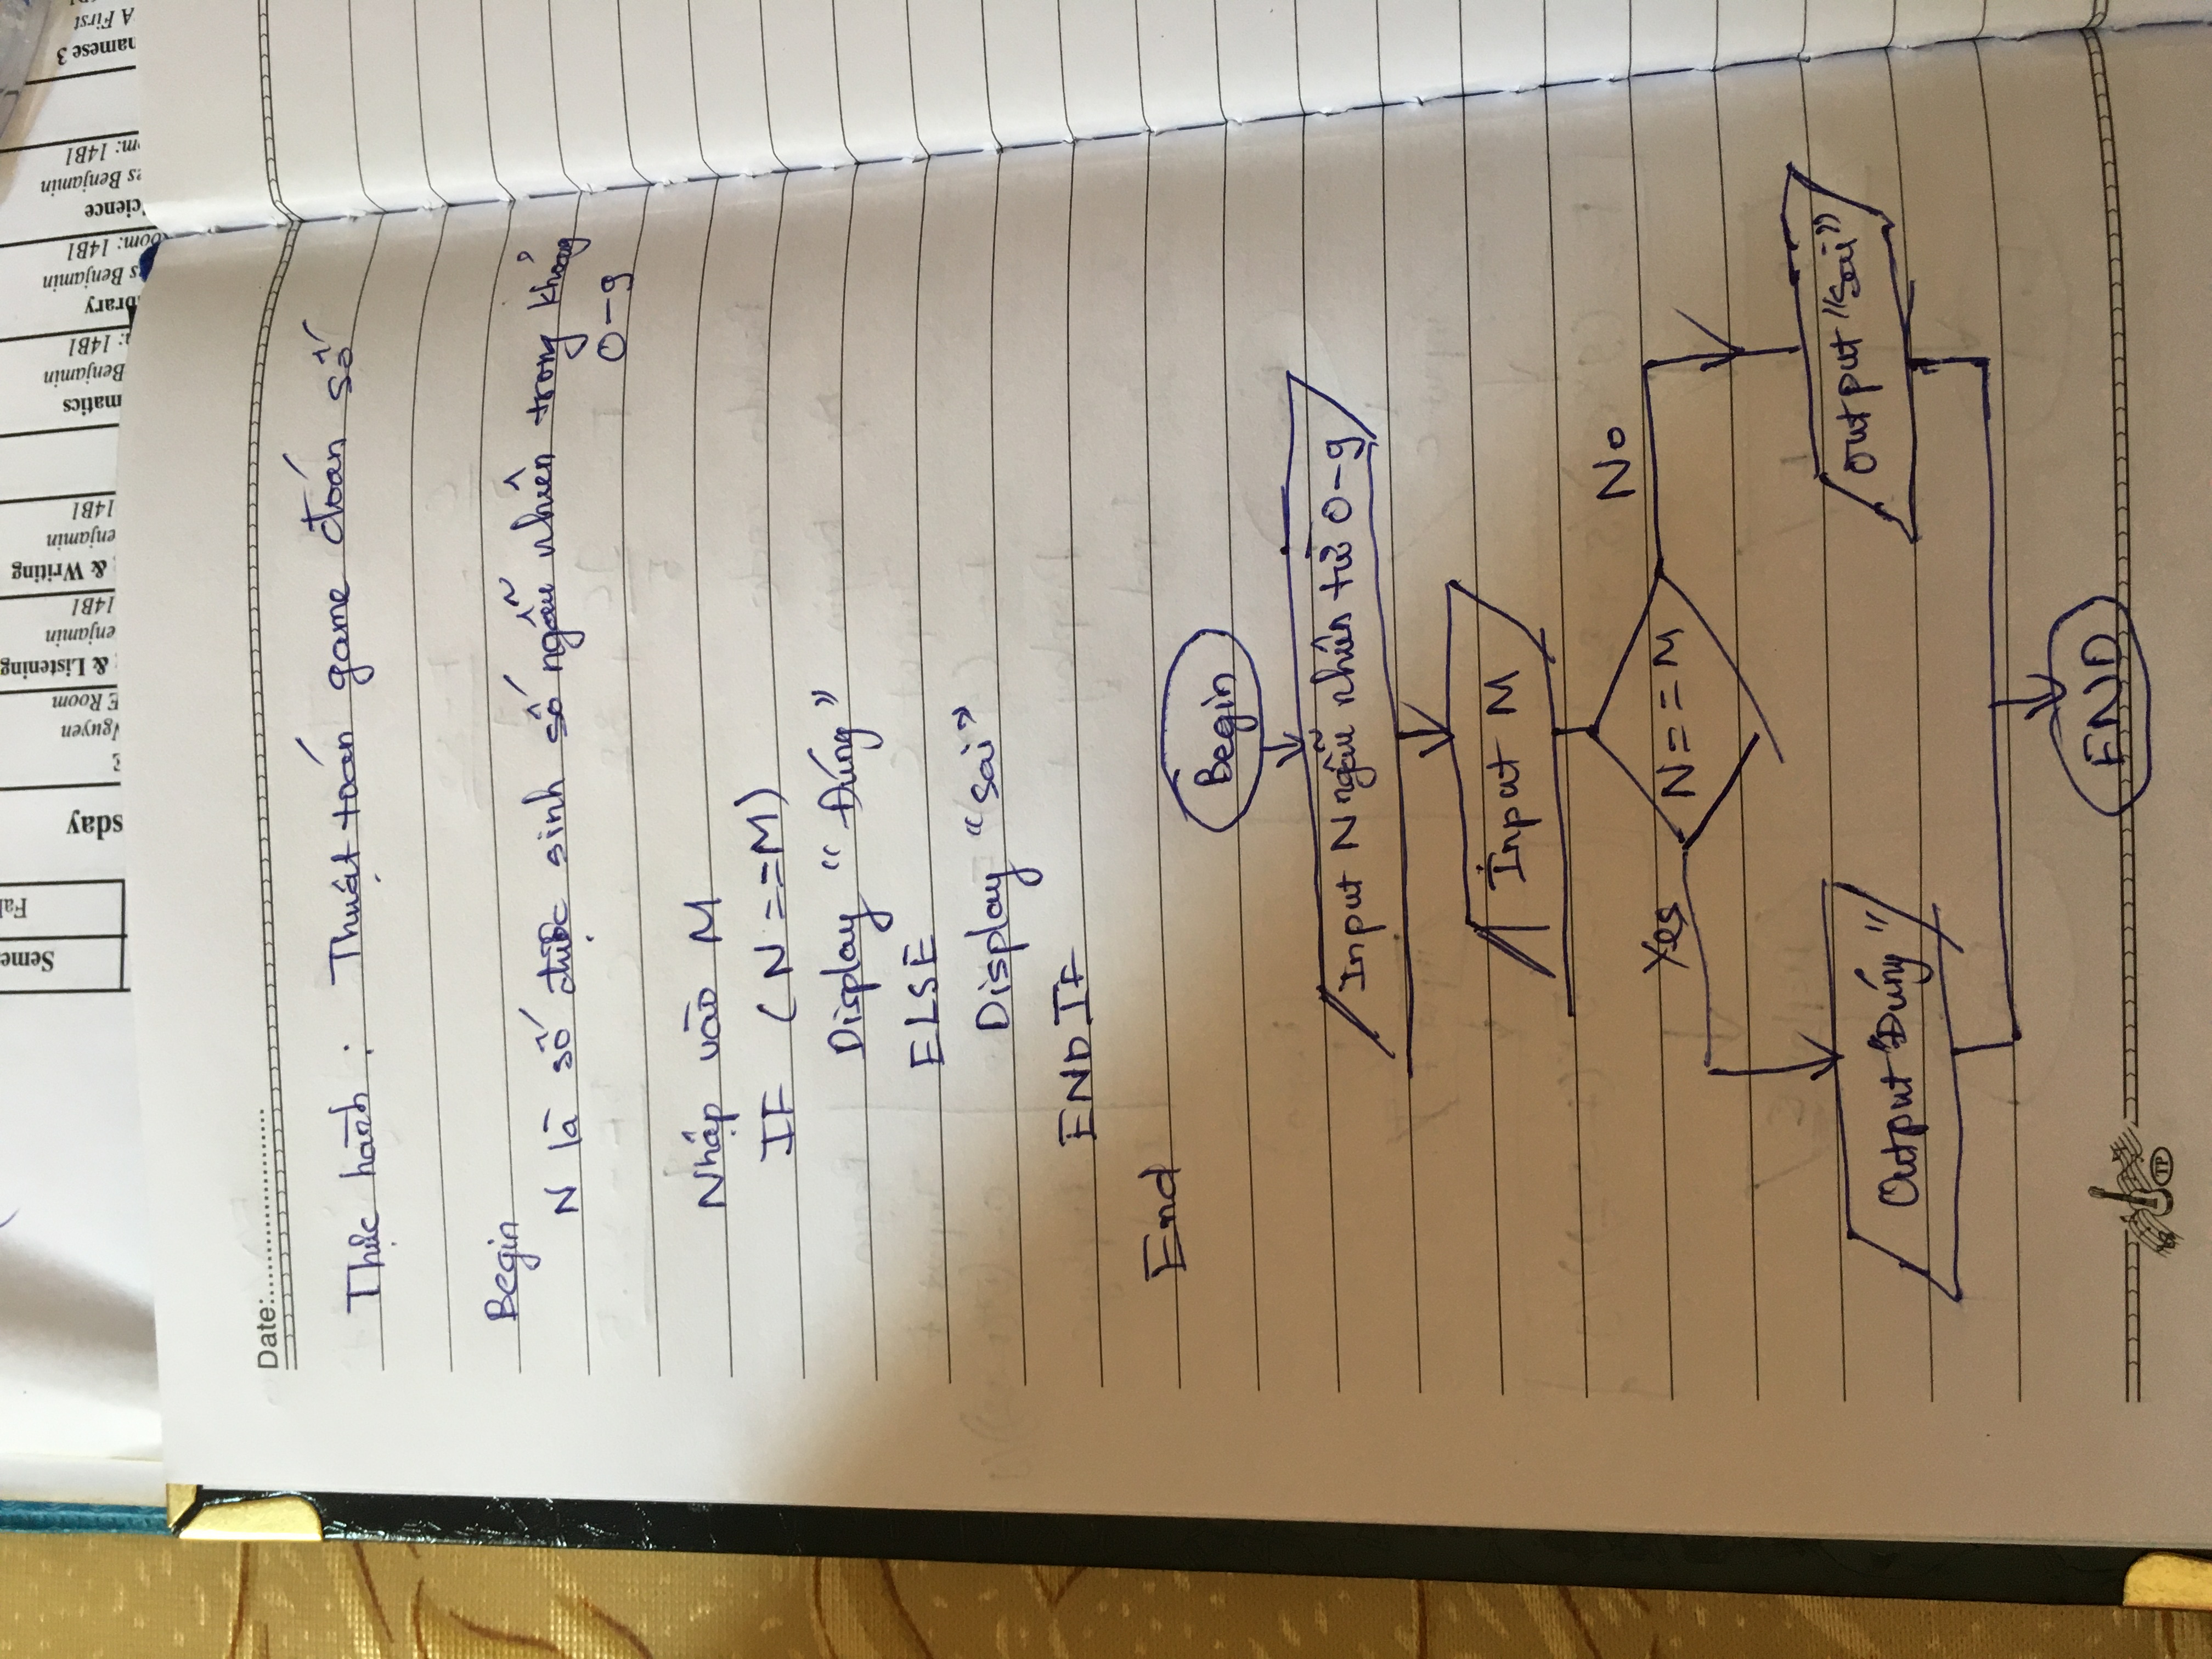 Seme
Fal
sday
Nguyen
E Room
& Listening
enjamin
14B1
& Writing
enjamin
14B1
matics
Benjamin
: 14B1
brary
s Benjamin
oom: 14B1
cience
es Benjamin
om: 14B1
namese 3
A First
Date:......................
Thực hành : Thuật toán game đoán số
Begin
N là số được sinh số ngẫu nhiên trong khỏng
0-9
Nhập vào M
IF (N ==M)
Display "Đúng"
ELSE
Display "Sai"
END IF
End
Begin
Input N ngẫu nhiên từ 0-9
Input M
N==M
Yes
No
Output "Đúng"
Output "Sai"
END
TP